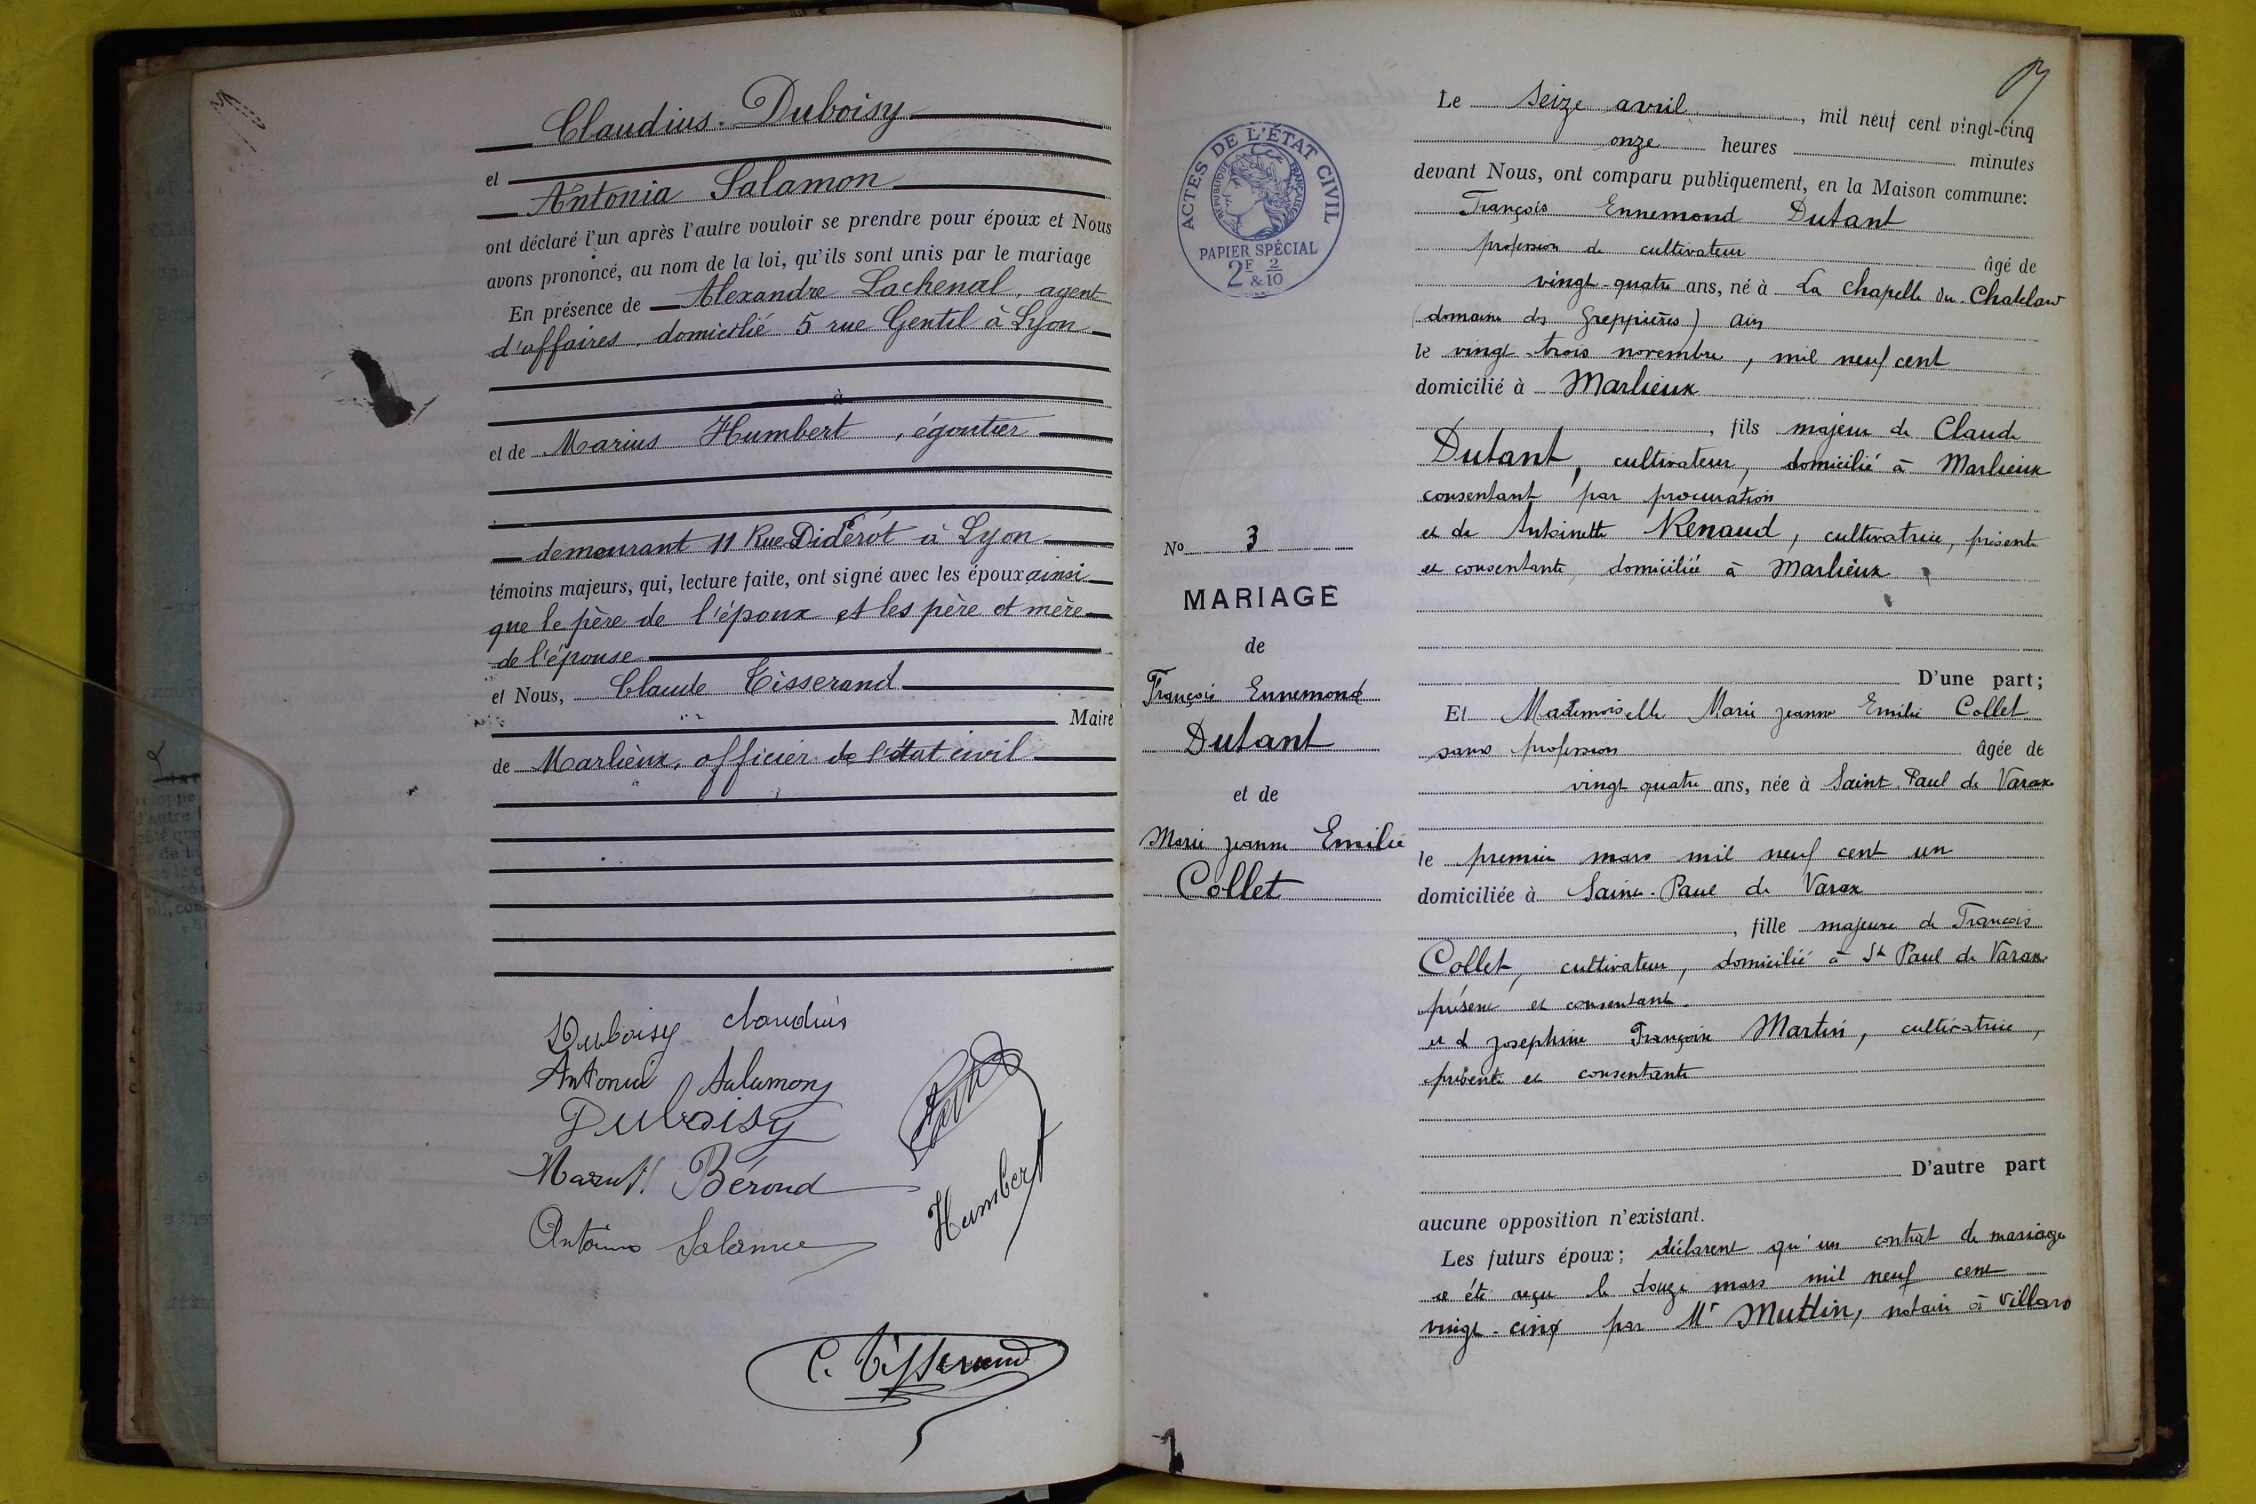 Claudius Duboisy
et
Antonia Salamon
ont déclaré l'un après l'autre vouloir se prendre pour époux et Nous
avons prononcé, au nom de la loi, qu'ils sont unis par le mariage
En présence de Alexandre Lachenal, agent
d'affaires, domicilié 5 rue Gentil à Lyon
à
et de Marius Humbert, égoutier
demeurant 11 Rue Diderot à Lyon
témoins majeurs, qui, lecture faite, ont signé avec les époux ainsi
que le père de l'époux et les père et mère
de l'épouse
et Nous, Claude Tisserand
Maire
de Marlieux, officier de l'état civil
Duboisy Claudius
Antonia Salamon
Duboisy
Béroud
Humbert
C. Tisserand
ACTES DE L'ÉTAT CIVIL
RÉPUBLIQUE FRANÇAISE
PAPIER SPÉCIAL
2F & 2/10
No 3
MARIAGE
de
François Ennemond
Dutant
et de
Marie Jeanne Emilie
Collet
Le seize avril, mil neuf cent vingt-cinq
onze heures minutes
devant Nous, ont comparu publiquement, en la Maison commune:
François Ennemond Dutant
profession de cultivateur âgé de
vingt-quatre ans, né à La Chapelle du Chatelard
(domaine des Greppières) Ain
le vingt-trois novembre, mil neuf cent
domicilié à Marlieux
, fils majeur de Claude
Dutant, cultivateur, domicilié à Marlieux
consentant par procuration
et de Antoinette Renaud, cultivatrice, présente
et consentante, domiciliée à Marlieux
D'une part;
Et Mademoiselle Marie Jeanne Emilie Collet
sans profession âgée de
vingt quatre ans, née à Saint Paul de Varax
le premier mars mil neuf cent un
domiciliée à Saint-Paul de Varax
, fille majeure de François
Collet, cultivateur, domicilié à St Paul de Varax
présent et consentant.
et d Josephine Françoise Martin, cultivatrice,
présente et consentante
D'autre part
aucune opposition n'existant.
Les futurs époux; déclarent qu'un contrat de mariage
a été reçu le douze mars mil neuf cent
vingt-cinq par Mr Muttin, notaire à Villars